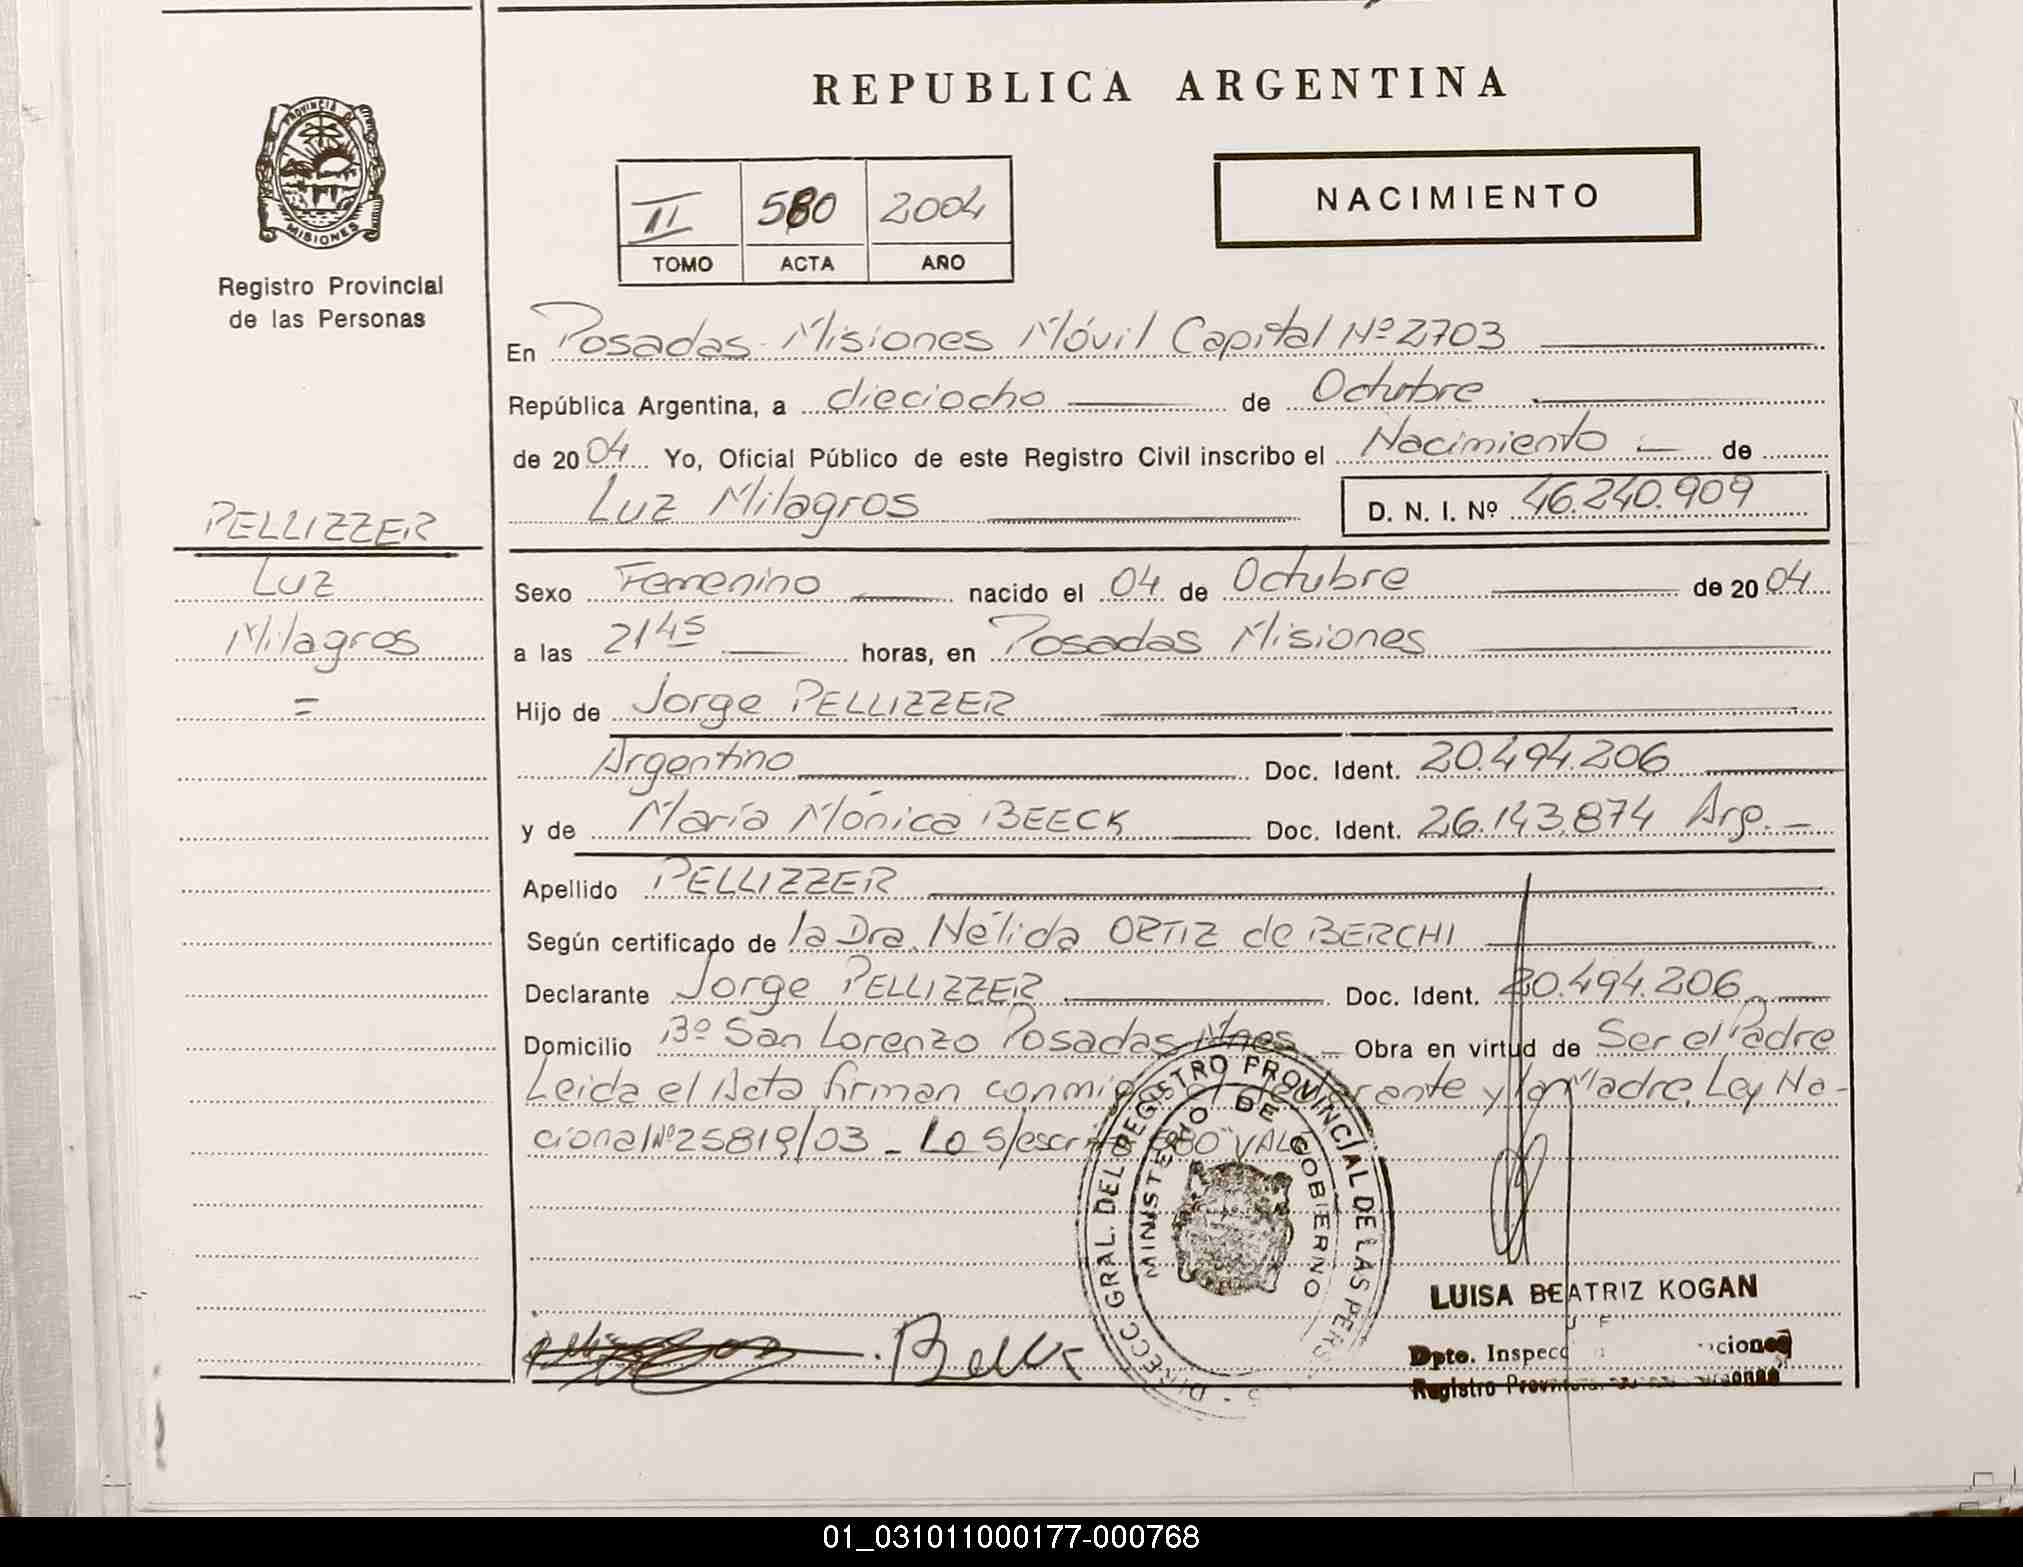 REPUBLICA ARGENTINA
PROVINCIA DE MISIONES
Registro Provincial
de las Personas
II 580 2004
TOMO ACTA AÑO
NACIMIENTO
En Posadas Misiones Móvil Capital Nº 2703
República Argentina, a dieciocho de Octubre
de 2004 Yo, Oficial Público de este Registro Civil inscribo el Nacimiento de
Luz Milagros D. N. I. Nº 46.240.909
PELLIZZER
Luz
Milagros
=
Sexo Femenino nacido el 04 de Octubre de 2004
a las 2145 horas, en Posadas Misiones
Hijo de Jorge PELLIZZER
Argentino Doc. Ident. 20.494.206
y de María Mónica BEECK Doc. Ident. 26.143.874 Arg.
Apellido PELLIZZER
Según certificado de la Dra. Nélida ORTIZ de BERCHI
Declarante Jorge PELLIZZER Doc. Ident. 20.494.206
Domicilio Bº San Lorenzo Posadas Mnes Obra en virtud de Ser el Padre
Leida el Acta firman conmigo el declarante y la Madre. Ley Na-
cional Nº 25819/03 - Lo s/escrito "580" VALE
DIRECC. GRAL. DEL REGISTRO PROVINCIAL DE LAS PERS
MINISTERIO DE GOBIERNO
LUISA BEATRIZ KOGAN
Dpto. Inspecc ciones
Registro Provincial
01_031011000177-000768